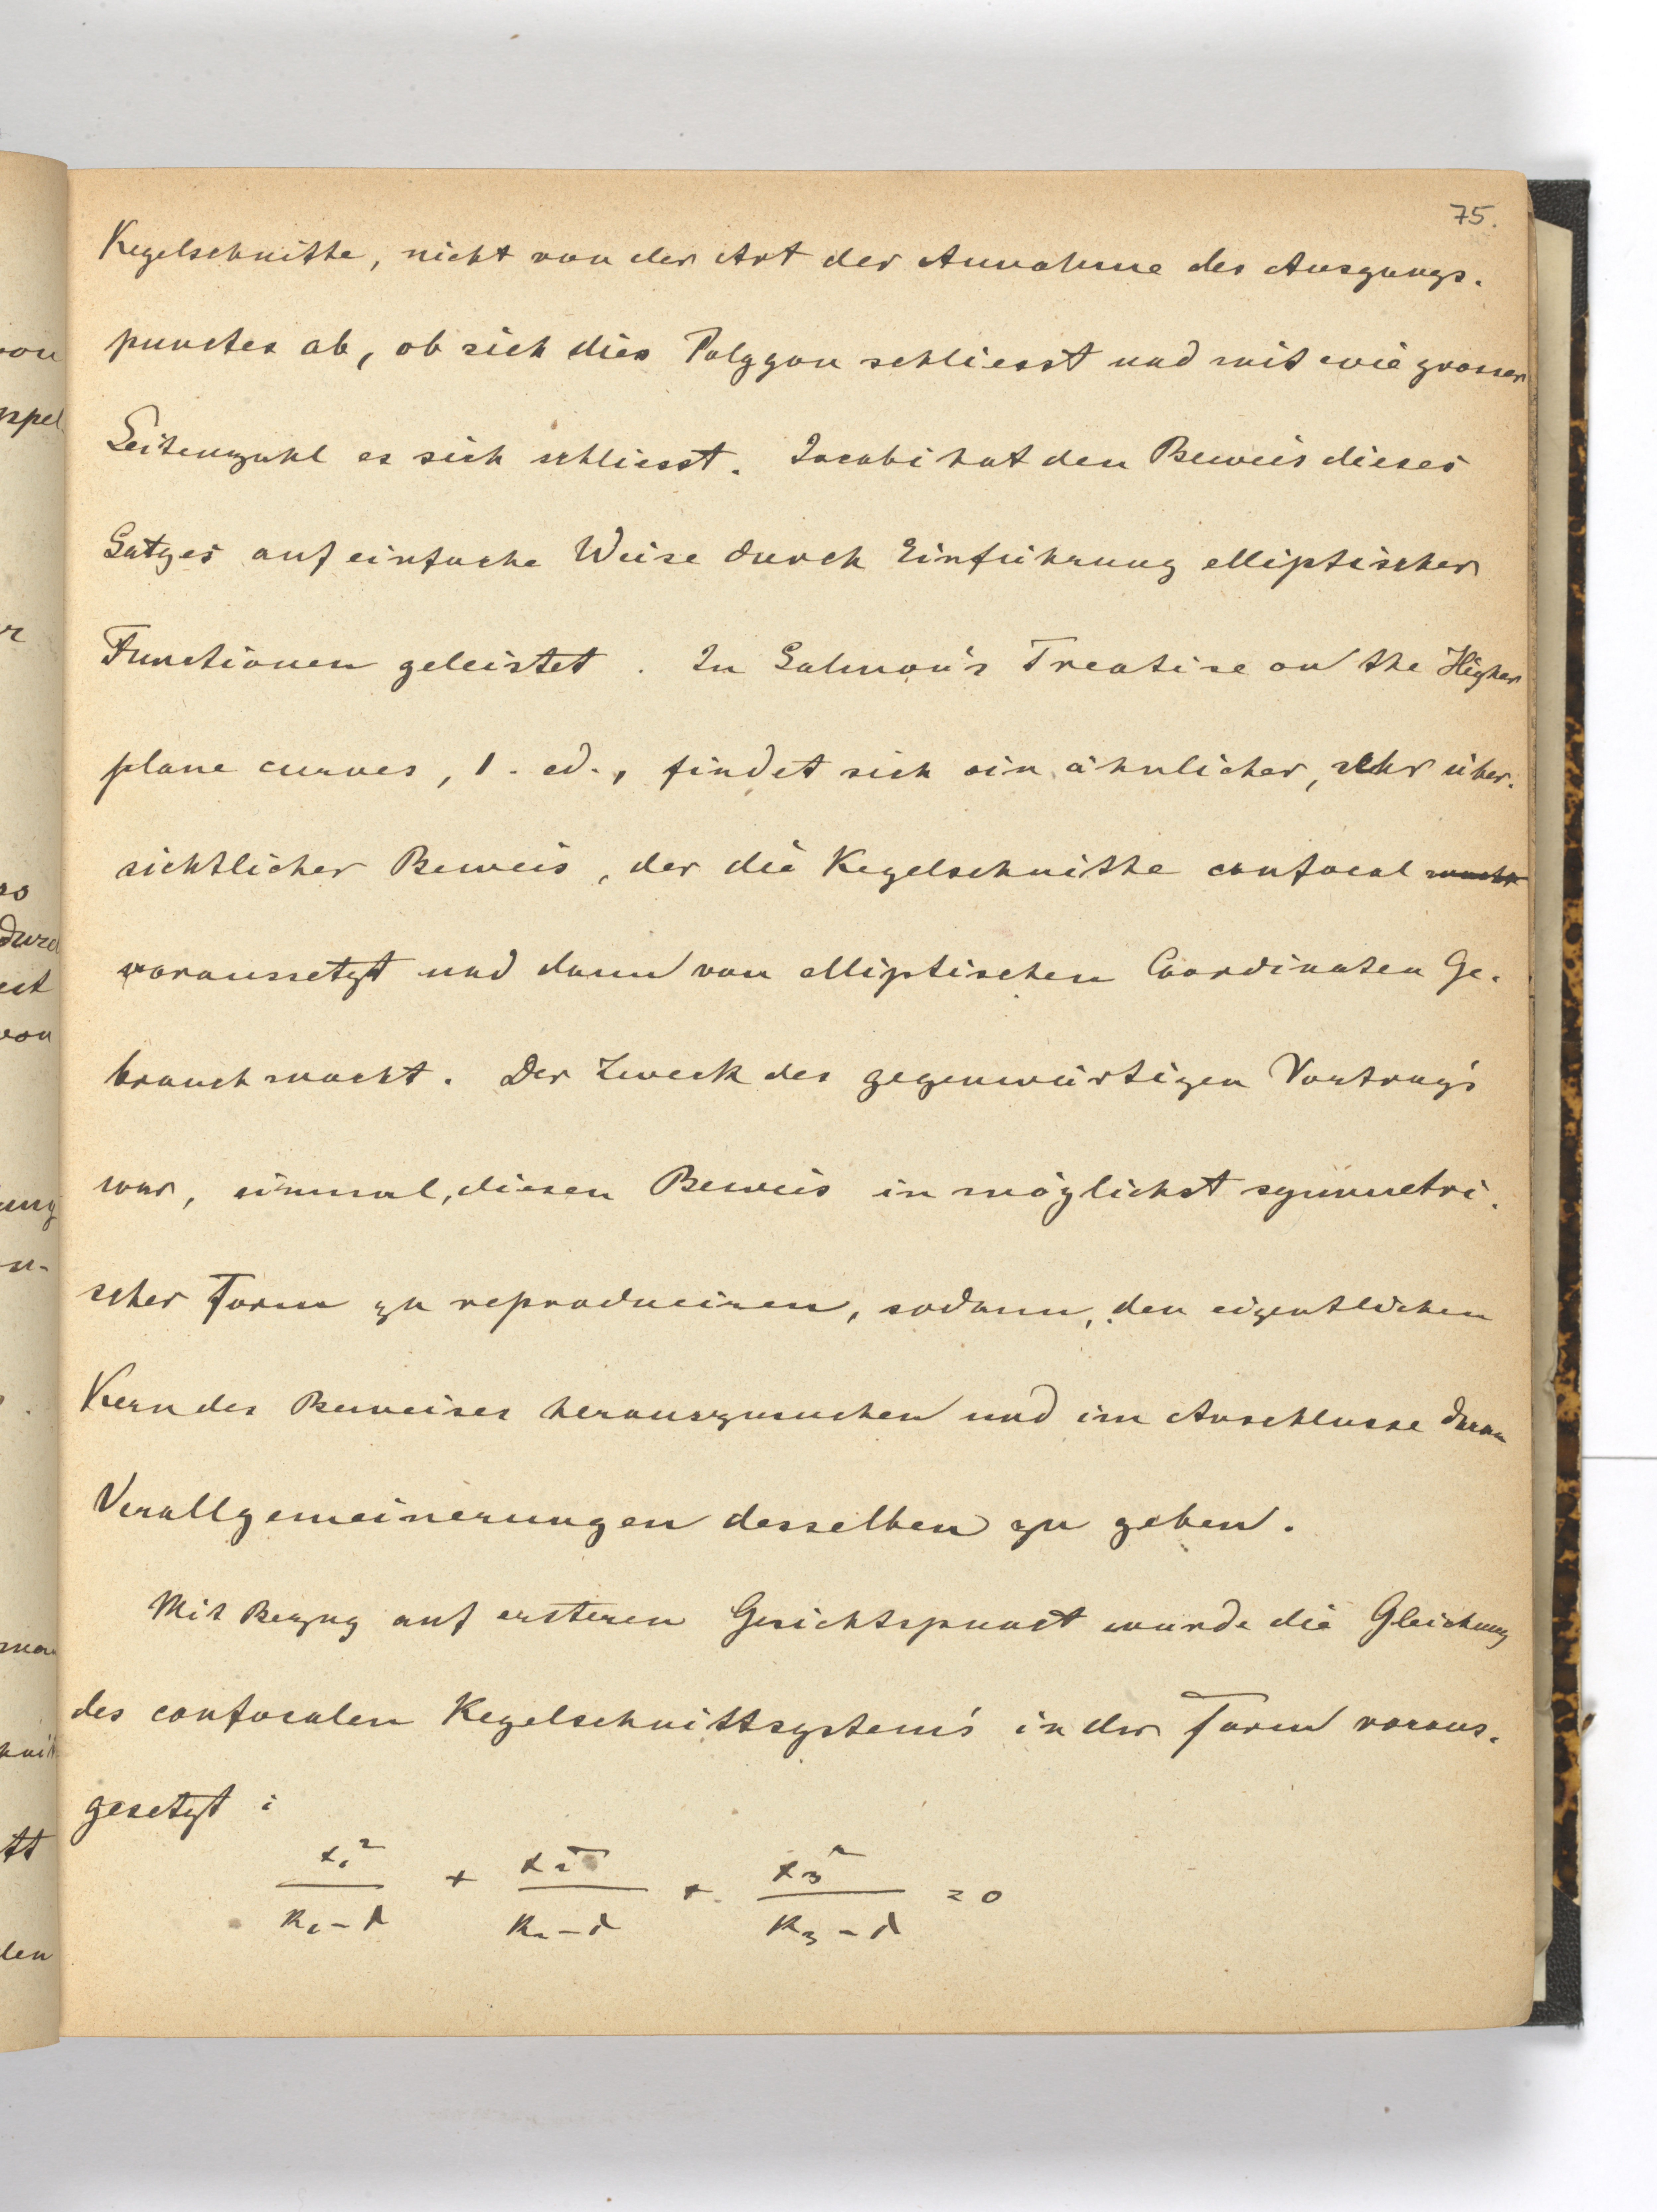 75.
Kegelschnitte, nicht von der Art der Annahme des Ausgangs-
punctes ab, ob sich dies Polygon schliesst und mit wie grosser
Seitenzahl es sich schliesst. Jacobi hat den Beweis dieses
Satzes auf einfache Weise durch Einführung elliptischer
Functionen geleistet. In Salmon's Treatise on the Higher
plane curves, 1. ed., findet sich ein ähnlicher, sehr über-
sichtlicher Beweis, der die Kegelschnitte confocal
voraussetzt und dann von elliptischen Coordinaten Ge-
brauch macht. Der Zweck des gegenwärtigen Vortrag's
war, einmal, diesen Beweis in möglichst symmetri-
scher Form zu reproduciren, sodann, den eigentlichen
Kern des Beweises herauszusuchen und im Anschlusse daran
Verallgemeinerungen desselben zu geben.
Mit Bezug auf ersteren Gesichtspunct wurde die Gleichung
des confocalen Kegelschnittsystem's in der Form voraus-
gesetzt:
x₁²/(k₁-λ) + x₂²/(k₂-λ) + x₃²/(k₃-λ) = 0
von
ppel
r
so
durch
von
ung
n-
tt
len